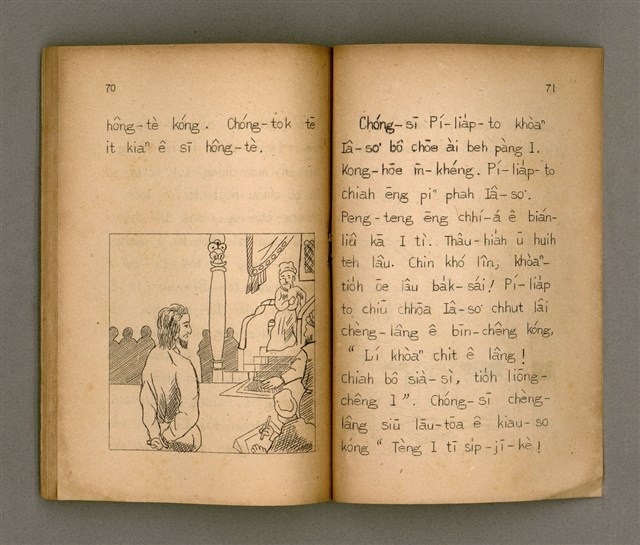 70
hông-tè kóng. Chóng-tok tē
it kiaⁿ ê sī hông-tè.
71
Chóng-sī Pí-lia̍p-to khòaⁿ
Iâ-so͘ bô chōe ài beh pàng I.
Kong-hōe m̄-khéng. Pí-lia̍p-to
chiah ēng piⁿ phah Iâ-so͘.
Peng-teng ēng chhì-á ê bián-
liû kā I tì. Thâu-hia̍h ū huih
teh lâu. Chin khó lîn, khòaⁿ-
tio̍h ōe lâu ba̍k-sái! Pí-lia̍p
to chiū chhōa Iâ-so͘ chhut lâi
chèng-lâng ê bīn-chêng kóng,
“ Lí khòaⁿ chit ê lâng!
chiah bô sià-sì, tio̍h liōng-
chêng I ”. Chóng-sī chèng-
lâng siū lāu-tōa ê kiau-so
kóng “ Tèng I tī si̍p-jī-kè!